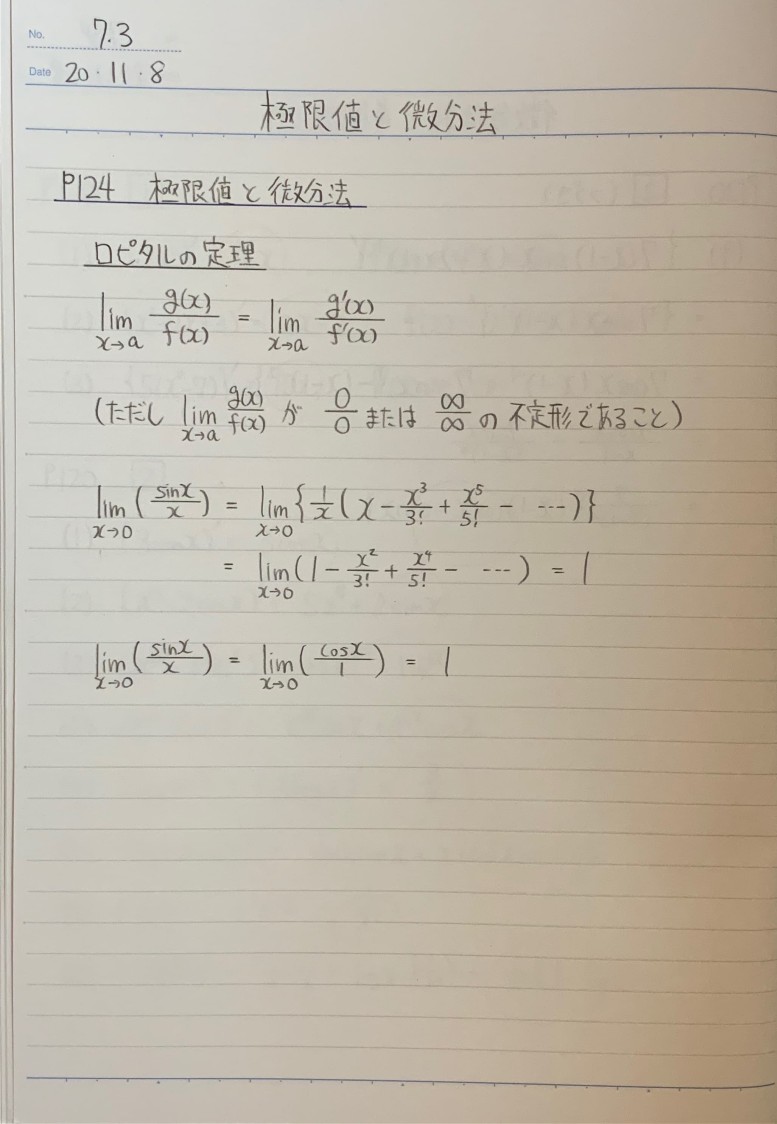 No. 7.3
Date 20・11・8
極限値と微分法
P124 極限値と微分法
ロピタルの定理
lim x→a g(x)/f(x) = lim x→a g'(x)/f'(x)
(ただし lim x→a g(x)/f(x) が 0/0 または ∞/∞ の不定形であること)
lim x→0 (sinx/x) = lim x→0 {1/x (x - x³/3! + x⁵/5! - …)}
= lim x→0 (1 - x²/3! + x⁴/5! - …) = 1
lim x→0 (sinx/x) = lim x→0 (cosx/1) = 1